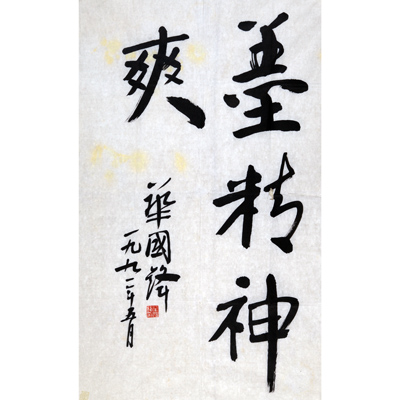 墨精神
爽
華國鋒
一九九二年五月